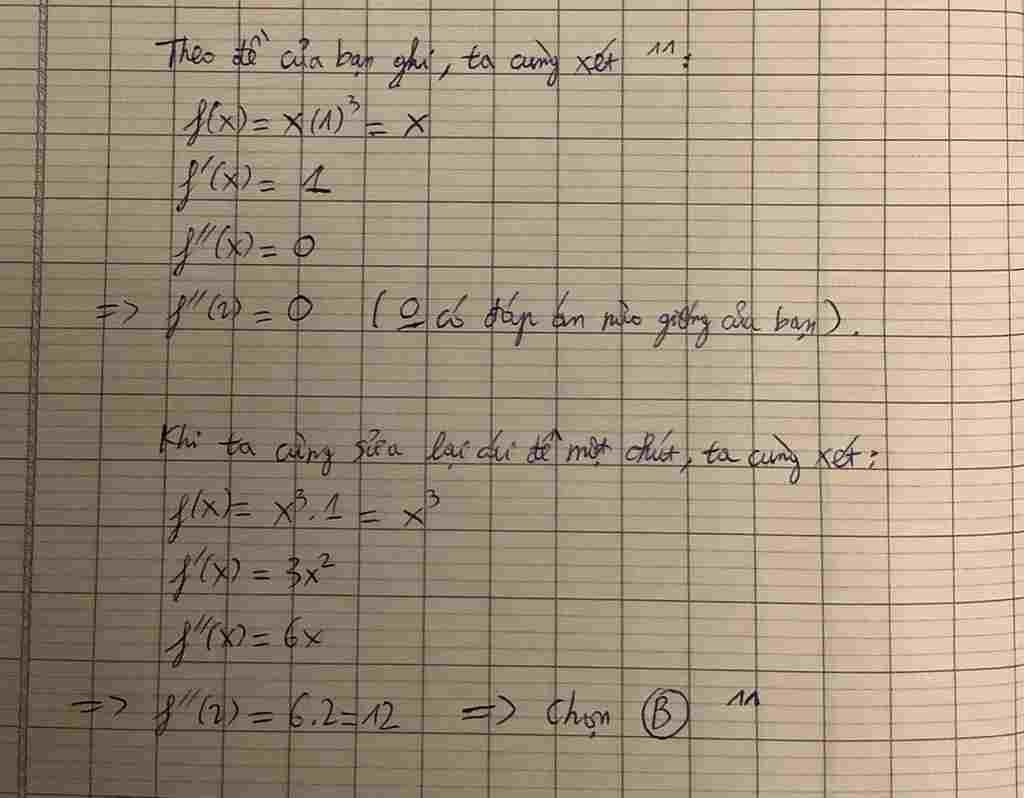 Theo đề của bạn ghi, ta cùng xét "
f(x) = x(1)³ = x
f'(x) = 1
f''(x) = 0
=> f''(2) = 0 (O có đáp án nào giống của bạn).
Khi ta cùng sửa lại đề một chút, ta cùng xét:
f(x) = x³.1 = x³
f'(x) = 3x²
f''(x) = 6x
=> f''(2) = 6.2=12 => Chọn B